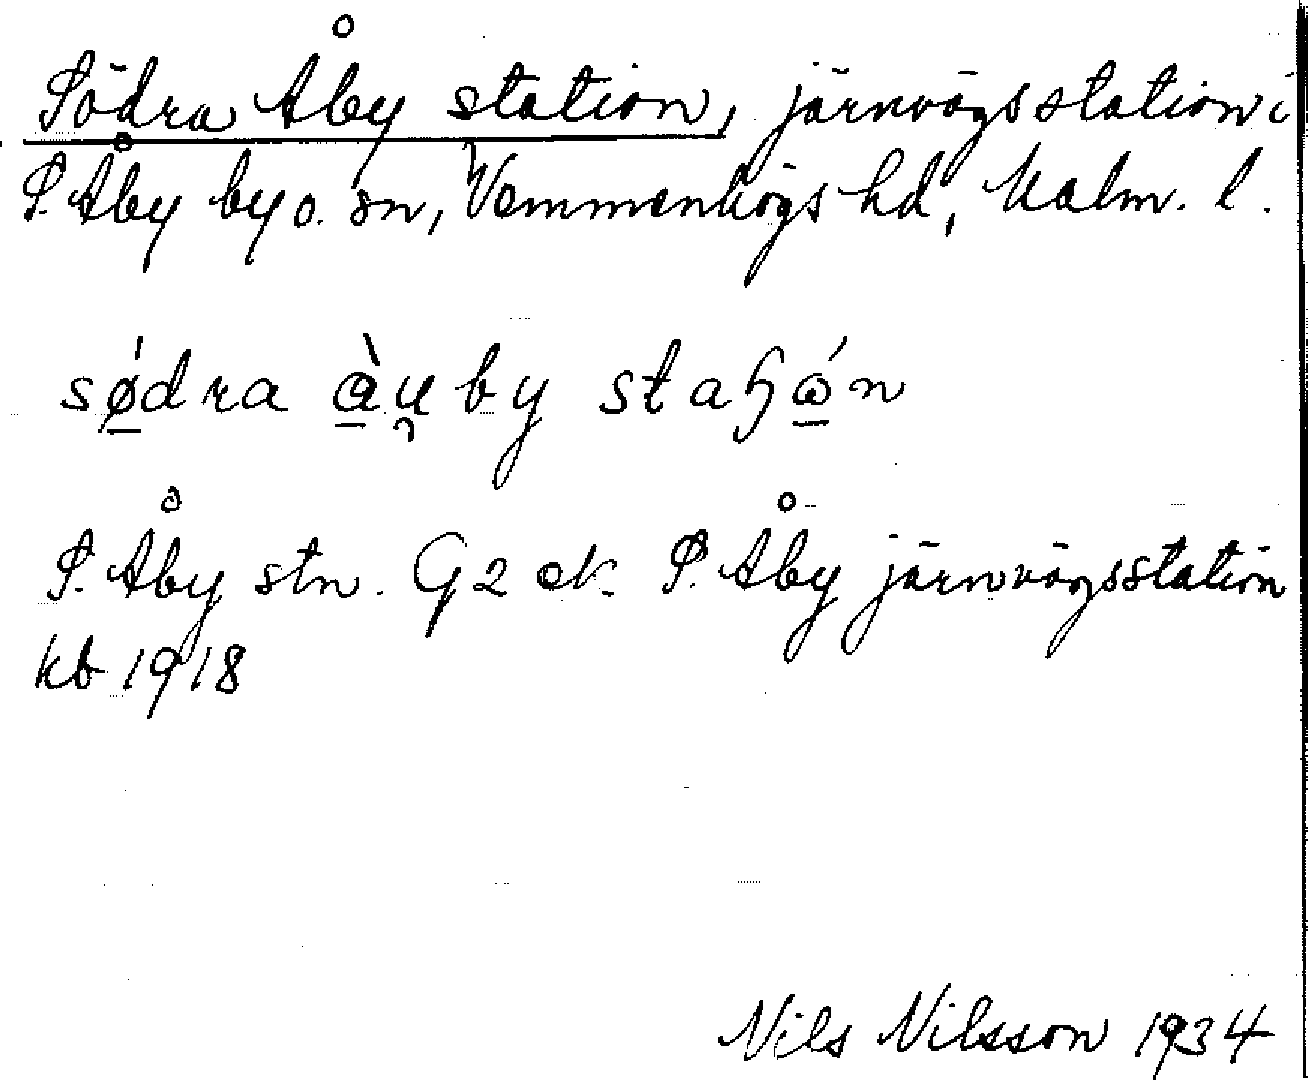 Södra Åby station, järnvägsstation i
S. Åby by o. sn, Vemmenhögs hd, Malm. l.
sǿdra àu̯by staɧώn
S. Åby stn. G2 ek. S. Åby järnvägsstation
kb 1918
Nils Nilsson 1934